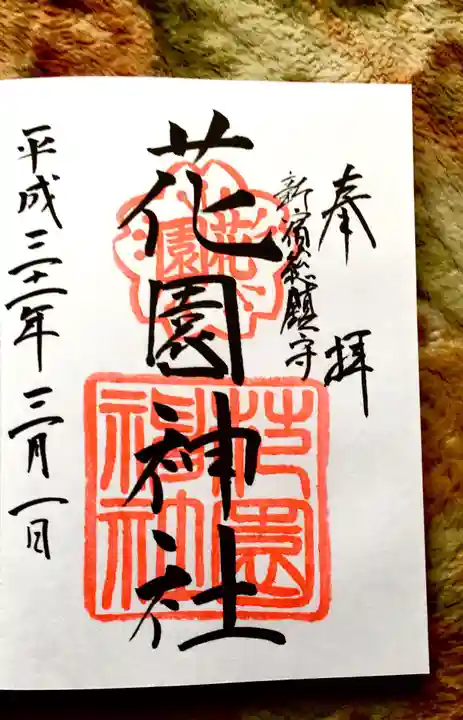 奉拝
新宿総鎮守
花園神社
花園
花園神社
平成三十一年三月一日